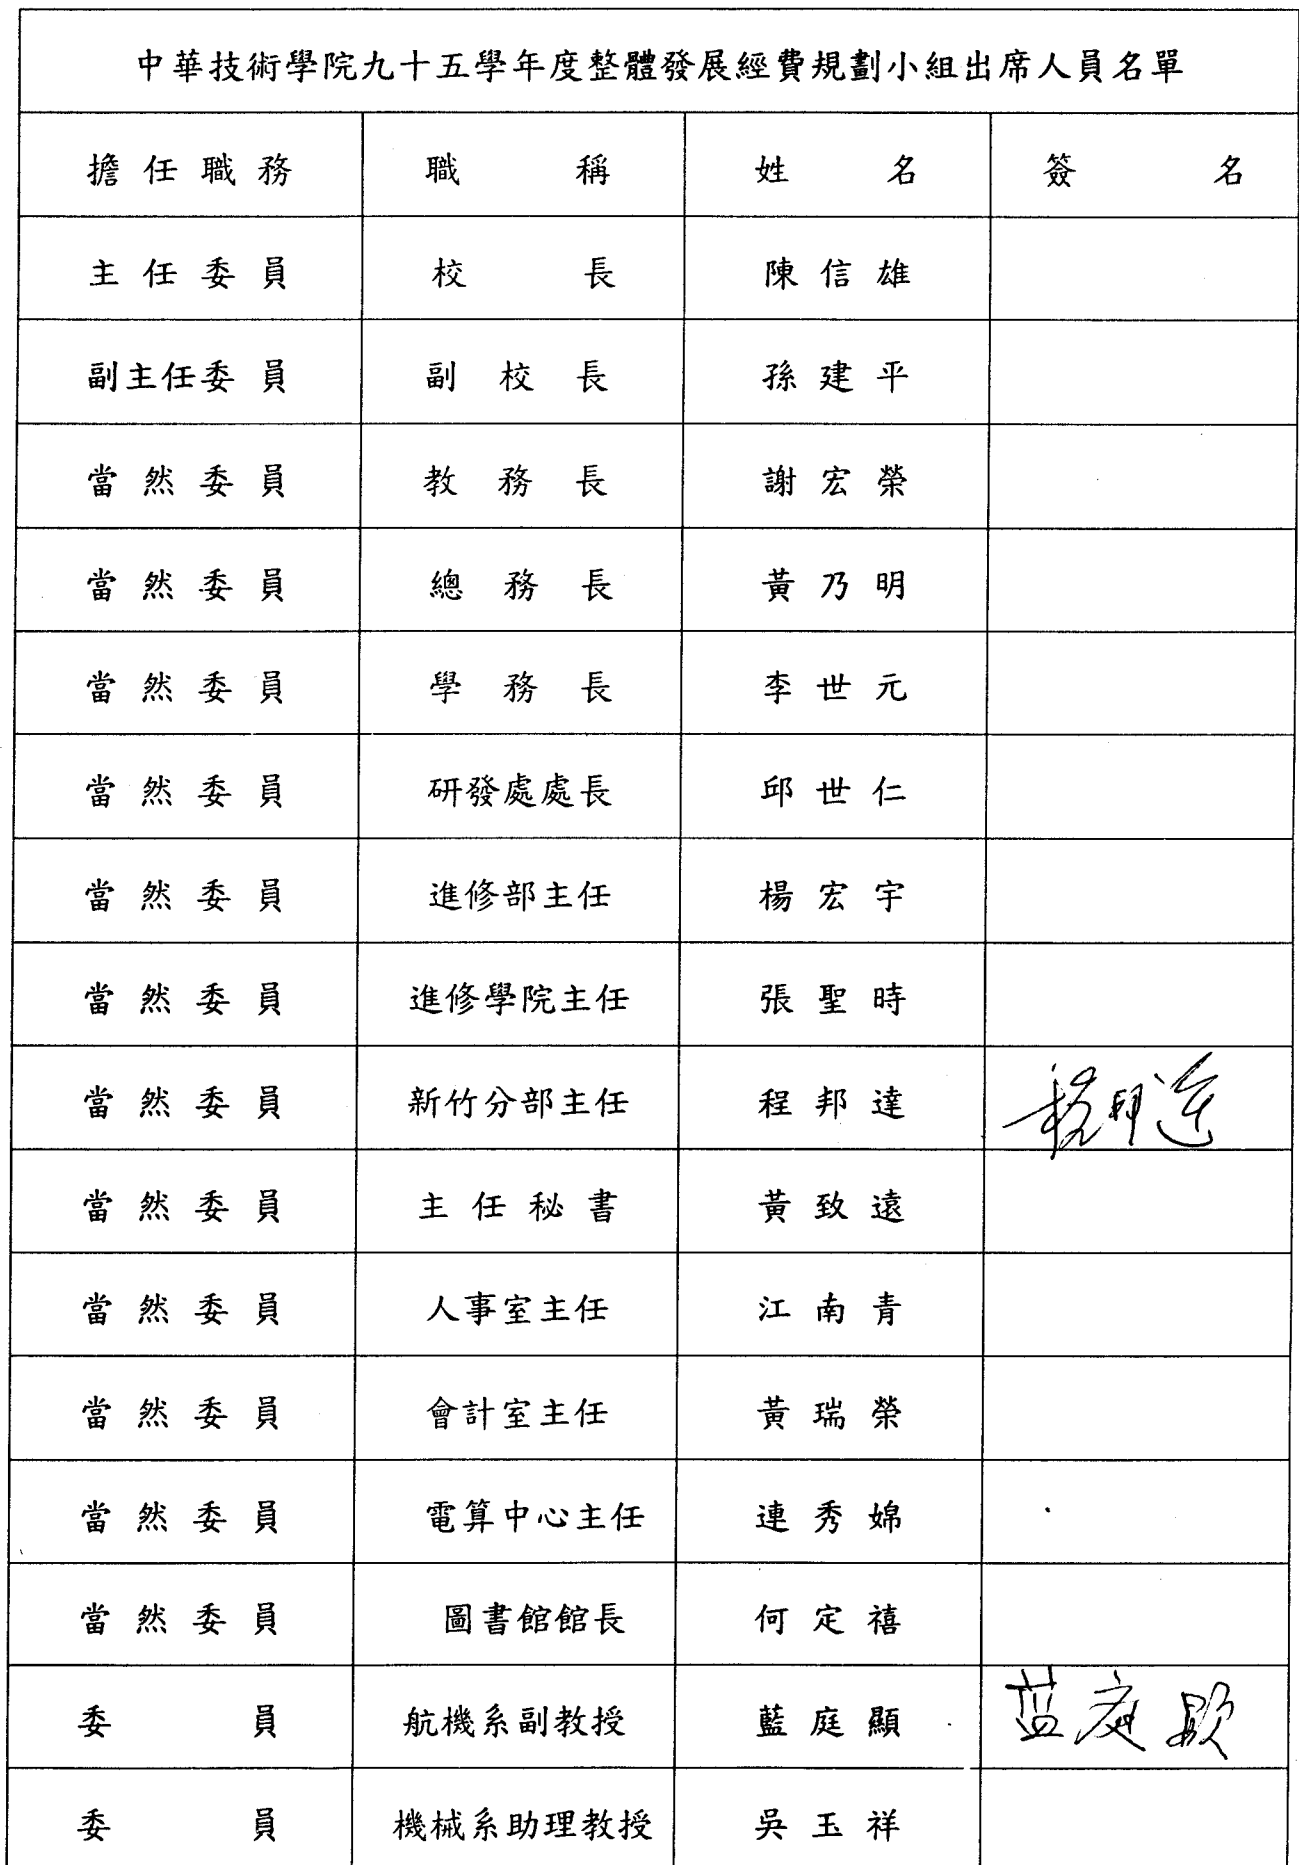 中華技術學院九十五學年度整體發展經費規劃小組出席人員名單
擔任職務 職稱 姓名 簽名
主任委員 校長 陳信雄
副主任委員 副校長 孫建平
當然委員 教務長 謝宏榮
當然委員 總務長 黃乃明
當然委員 學務長 李世元
當然委員 研發處處長 邱世仁
當然委員 進修部主任 楊宏宇
當然委員 進修學院主任 張聖時
當然委員 新竹分部主任 程邦達 程邦達
當然委員 主任秘書 黃致遠
當然委員 人事室主任 江南青
當然委員 會計室主任 黃瑞榮
當然委員 電算中心主任 連秀婂
當然委員 圖書館館長 何定禧
委員 航機系副教授 藍庭顯 蓝庭顯
委員 機械系助理教授 吳玉祥